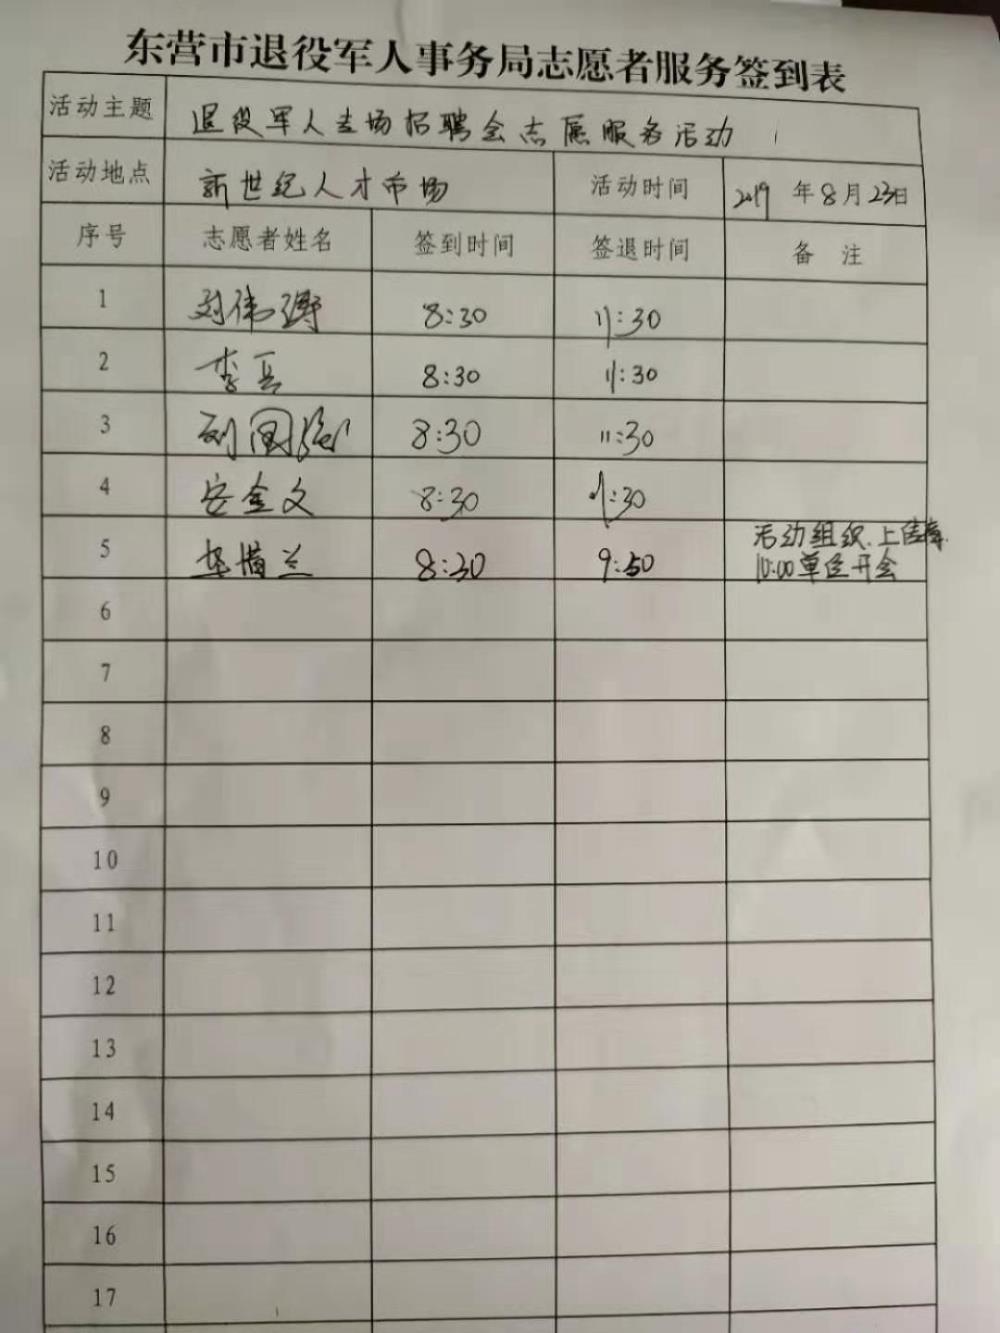 东营市退役军人事务局志愿者服务签到表
活动主题 退役军人专场招聘会志愿服务活动
活动地点 新世纪人才市场 活动时间 2019 年 8 月 23 日
序号 志愿者姓名 签到时间 签退时间 备 注
1 刘伟 8:30 11:30
2 李兵 8:30 11:30
3 刘国强 8:30 11:30
4 安金文 8:30 11:30
5 兰 8:30 9:50 活动组织、上传
10:00单位开会
6
7
8
9
10
11
12
13
14
15
16
17